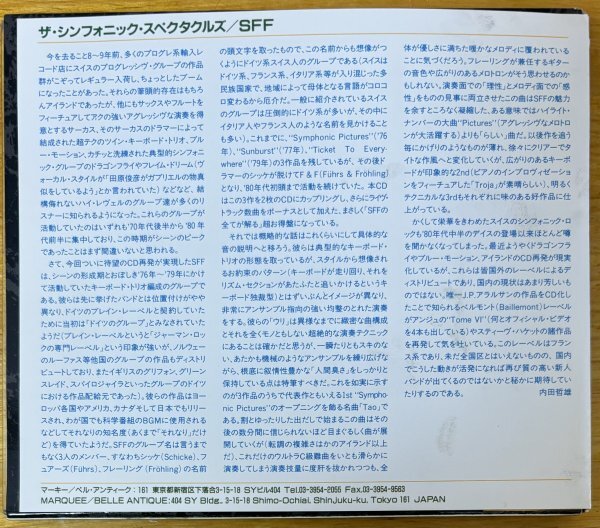 ザ・シンフォニック・スペクタクルズ／SFF
今を去ること8〜9年前、多くのプログレ系輸入レ
コード店にスイスのプログレッシヴ・グループの作品
群がこぞってレギュラー入荷し、ちょっとしたブーム
になったことがあった。それらの筆頭的存在はもちろ
んアイランドであったが、他にもサックスやフルートを
フィーチュアしてアクの強いアグレッシヴな演奏を得
意とするサーカス、そのサーカスのドラマーによって
結成された超テクのツイン・キーボード・トリオ、ブル
ー・モーション、カチッと洗練された典型的シンフォニ
ック・グループのドラゴンフライやフレイム・ドリーム（ヴ
ォーカル・スタイルが「田原俊彦がガブリエルの物真
似をしているよう」とか言われていた）などなど、結
構侮れないハイ・レヴェルのグループ達が多くのリ
スナーに知られるようになった。これらのグループが
活動していたのはいずれも'70年代後半から'80年
代前半に集中しており、この時期がシーンのピーク
であったことはまず間違いないと思われる。
さて、今回ついに待望のCD再発が実現したSFF
は、シーンの形成期とおぼしき'76年〜'79年にかけ
て活動していたキーボード・トリオ編成のグループで
ある。彼らは先に挙げたバンドとは位置付けがやや
異なり、ドイツのブレイン・レーベルと契約していた
ために当初は「ドイツのグループ」とみなされていた
ようだ（ブレイン・レーベルというと「ジャーマン・ロッ
クの専門レーベル」という印象が強いが、ノルウェー
のルーファス等他国のグループの作品もディストリ
ビュートしており、またイギリスのグリフォン、グリーン
スレイド、スパイロジャイラといったグループのドイツ
における作品配給元であった）。彼らの作品はヨー
ロッパ各国やアメリカ、カナダそして日本でもリリー
スされ、わが国でも科学番組のBGMに使用される
などしてそれなりの知名度（あくまで「それなり」だけ
ど）を得ていたようだ。SFFのグループ名は言うまで
もなく3人のメンバー、すなわちシッケ（Schicke）、フ
ュアーズ（Führs）、フレーリング（Fröhling）の名前
の頭文字を取ったもので、この名前からも想像がつ
くようにドイツ系スイス人のグループである（スイスは
ドイツ系、フランス系、イタリア系等が入り混じった多
民族国家で、地域によって母体となる言語がコロコ
ロ変わるから厄介だ。一般に紹介されているスイス
のグループは圧倒的にドイツ系が多いが、その中に
イタリア人やフランス人のような名前を見かけること
も多い）。これまでに、“Symphonic Pictures”（'76
年）、“Sunburst”（'77年）、“Ticket To Every-
where”（'79年）の3作品を残しているが、その後ド
ラマーのシッケが脱けてF & F（Führs & Fröhling）
となり、'80年代初頭まで活動を続けていた。本CD
はこの3作を2枚のCDにカップリングし、さらにライヴ
・トラック数曲をボーナスとして加えた、まさしく「SFFの
全てが解る」超お得盤になっている。
それでは概略的な話はこれくらいにして具体的な
音の説明へと移ろう。彼らは典型的なキーボード・
トリオの形態を取っているが、スタイルから想像され
るお約束のパターン（キーボードが走り回り、それを
リズム・セクションがあたふたと追いかけるというキー
ボード独裁型）とはずいぶんとイメージが異なり、非
常にアンサンブル指向の強い均整のとれた演奏を
する。彼らの「ウリ」は異様なまでに緻密な曲構成と
それを全くモノともしない超絶的な演奏テクニックに
あることは確かだと思うが、一瞬たりともスキのない、
あたかも機械のようなアンサンブルを繰り広げなが
ら、根底に叙情性豊かな「人間臭さ」をしっかりと
保持している点は特筆すべきだ。これを如実に示す
のが3作品のうちで代表作ともいえる1st “Sympho-
nic Pictures”のオープニングを飾る名曲「Tao」であ
る。割とゆったりした出だしで始まるこの曲はその
後の数分間に信じられないほど目まぐるしく曲が展
開していくが（転調の複雑さはかのアイランド以上
だ）、これだけのウルトラC級難曲をいとも滑らかに
演奏してしまう演奏技量に度肝を抜かれつつも、全
体が優しさに満ちた暖かなメロディに覆われている
ことに気づくだろう。フレーリングが兼任するギター
の音色や広がりのあるメロトロンがそう思わせるのか
もしれない。演奏面での「理性」とメロディ面での「感
性」をものの見事に両立させたこの曲はSFFの魅力
を余すところなく凝縮した、ある意味ではハイライト・
ナンバーの大曲“Pictures”（アグレッシヴなメロトロ
ンが大活躍する）よりも「らしい」曲だ。以後作を追う
毎にかげりのようなものが薄れ、徐々にクリアーでタ
イトな作風へと変化していくが、広がりのあるキーボ
ードが印象的な2nd（ピアノのインプロヴィゼーショ
ンをフィーチュアした「Troja」が素晴らしい）、明るく
テクニカルな3rdもそれぞれに味のある好作品に仕
上がっている。
かくして栄華をきわめたスイスのシンフォニック・ロ
ックも'80年代中半のデイスの登場以来ほとんど噂
を聞かなくなってしまった。最近ようやくドラゴンフラ
イやブルー・モーション、アイランドのCD再発が現実
化しているが、これらは皆国外のレーベルによるデ
ィストリビュートであり、国内の現状はあまり芳しいも
のではない。唯一J.P.アラルサンの作品をCD化し
たことで知られるベルモント（Baillemont）レーベル
がアンジュの“Tome VI”（何とオフィシャル・ビデオ
を4本も出している）やスティーヴ・ハケットの諸作品
を再発して気を吐いている。このレーベルはフラン
ス系であり、未だ全国区とはいえないものの、国内
でこうした動きが活発になれば再び質の高い新人
バンドが出てくるのではないかと秘かに期待してい
たりするのである。
内田哲雄
マーキー／ベル・アンティーク：161 東京都新宿区下落合3-15-18 SYビル404 Tel.03-3954-2055 Fax.03-3954-8563
MARQUEE/BELLE ANTIQUE: 404 SY Bldg., 3-15-18 Shimo-Ochiai, Shinjuku-ku, Tokyo 161 JAPAN